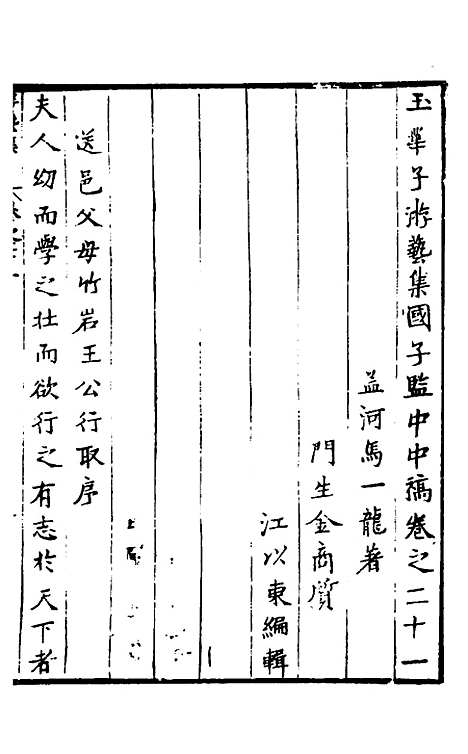 玉華子游藝集國子監中中稿卷之二十一
孟河馬一龍著
門生金商質
江以東編輯
送邑父母竹岩王公行取序
夫人幼而學之壯而欲行之有志於天下者